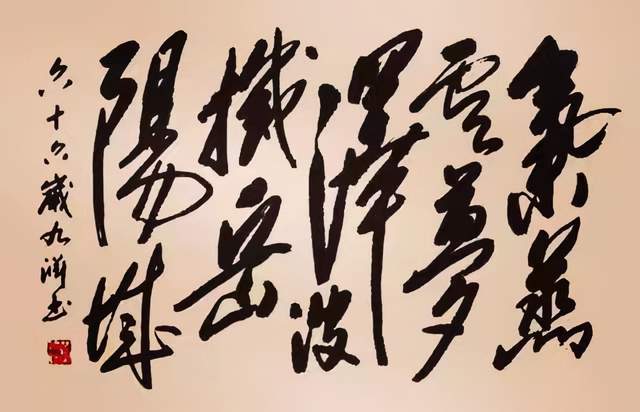 氣蒸
雲夢
澤波
撼岳
陽城
六十六歲九書